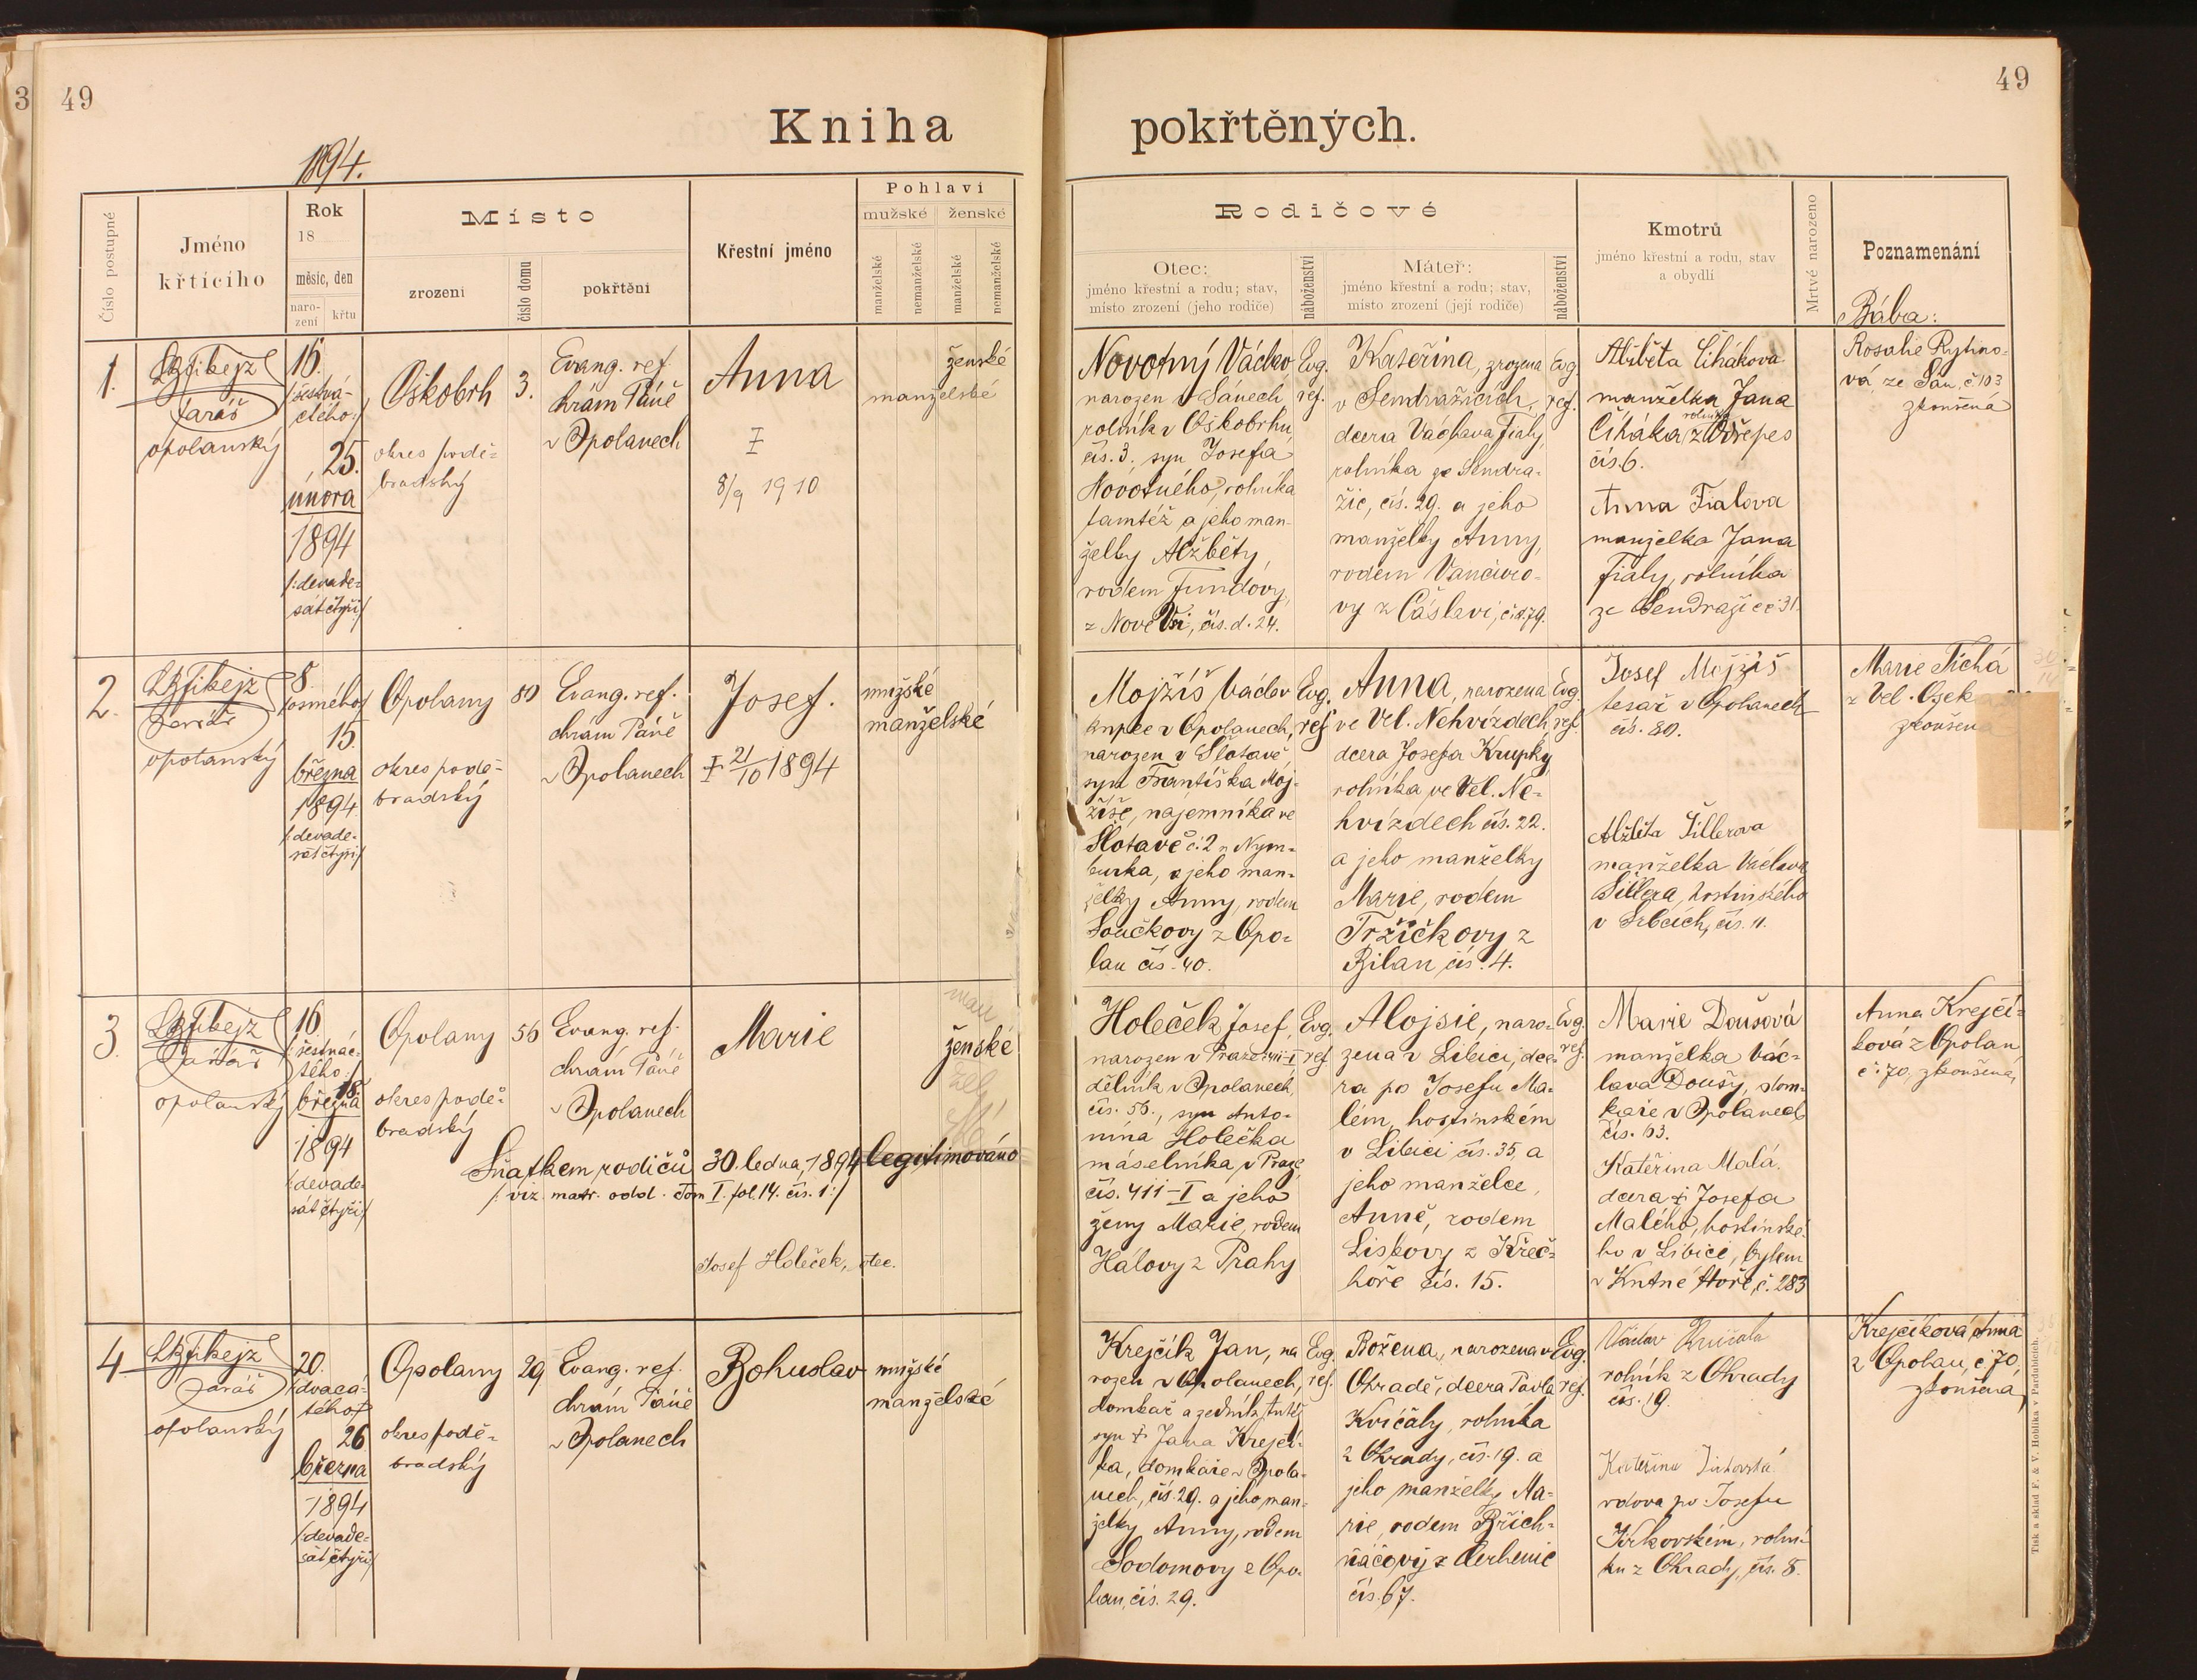 3 49
49
Kniha pokřtěných.
1894.
Číslo postupné
Jméno
křtícího
Rok
18
měsíc, den
naro-
zení
křtu
Místo
zrození
číslo domu
pokřtění
Křestní jméno
Pohlaví
mužské ženské
manželské
nemanželské
manželské
nemanželské
Rodičové
Otec:
jméno křestní a rodu; stav,
místo zrození (jeho rodiče)
náboženství
Máteř:
jméno křestní a rodu; stav,
místo zrození (její rodiče)
náboženství
Kmotrů
jméno křestní a rodu, stav
a obydlí
Mrtvé narozeno
Poznamenání
Bába:
1.
farář
opolanský
16.
/:šestná-
ctého:/
25.
února
1894
/:devade-
sátčtyři/
Oškobrh
okres podě-
bradský
3.
Evang. ref.
chrám Páně
v Opolanech
Anna
8/9 1910
ženské
manželské
Novotný Václav
narozen v Sánech
rolník v Oškobrhu,
čís. 3. syn Josefa
Novotného, rolníka
tamtéž a jeho man-
želky Alžběty,
rodem Fundovy,
z Nové Vsi, čís. d. 24.
Evg.
ref.
Kateřina, zrozena
v Sendražicích,
dcera Václava Fialy,
rolníka ze Sendra-
žic, čís. 29. a jeho
manželky Anny,
rodem Vančuro-
vy z Čáslavi, č.d. 79.
Evg.
ref.
Alžběta Čihákova
manželka Jana
rolníka
Čiháka z Vořepes
čís. 6.
Anna Fialova
manželka Jana
Fialy, rolníka
ze Sendražic č 31.
Rosalie
vá ze Sán, č 103
zkoušená
2.
farář
opolanský
8.
/osmého/
15.
března
1894.
/:devade-
sátčtyři/
Opolany
okres podě-
bradský
80
Evang. ref.
chrám Páně
v Opolanech
Josef.
21/10 1894
mužské
manželské
Mojžíš Václav
kupec v Opolanech,
narozen v Slotavě
syn Františka Moj-
žíše, najemníka ve
Slotavě č. 2 u Nym-
burka, a jeho man-
želky Anny, rodem
Součkovy z Opo-
lan čís. 40.
Evg.
ref.
Anna, narozena
ve Vel. Nehvízdech,
dcera Josefa Krupky
rolníka ve Vel. Ne-
hvízdech čís. 22.
a jeho manželky
Marie, rodem
Tržíčkovy z
Bilan, čís. 4.
Evg.
ref.
Josef Mojžíš
tesař v Opolanech
čís. 80.
Alžběta Šillerova
manželka Václava
Šillera, hostinského
v Srbcích, čís. 11.
Marie Tichá
z Vel. Osek
zkoušená
3.
farář
opolanský
16.
/:šestnác-
tého:/
18.
března
1894
/:devade-
sátčtyři/
Opolany
okres podě-
bradský
56
Evang. ref.
chrám Páně
v Opolanech
Marie
man
ženské
žel
ské
Sňatkem rodičů 30. ledna, 1894 legitimováno
/: viz matr. odd. Tom I. fol. 14. čís. 1:/
Josef Holeček, otec.
Holeček Josef,
narozen v Praze 411-I
dělník v Opolanech,
čís. 56., syn Anto-
nína Holečka
máselníka, v Praze,
čís. 411-I a jeho
ženy Marie, rodem
Hálovy z Prahy
Evg.
ref.
Alojsie, naro-
zena v Libici, dce-
ra po Josefu Ma-
lém, hostinském
v Libici čís. 35, a
jeho manželce,
Anně, rodem
Liskovy z Křeč-
hoře čís. 15.
Evg.
ref.
Marie Doušová
manželka Vác-
lava Doušy, dom-
káře v Opolanech
čís. 63.
Kateřina Malá.
dcera † Josefa
Malého, hostinské-
ho v Libici, bytem
v Kutné Hoře, č. 283
Anna Krejčí-
ková z Opolan
č. 70, zkoušená,
4
farář
opolanský
20.
/:dvacá-
tého/
26
března
1894
/devade-
sát čtyři/
Opolany
okres podě-
bradský
29
Evang. ref.
chrám Páně
v Opolanech
Bohuslav
mužské
manželské
Krejčík Jan, na
rozen v Opolanech,
domkář a zedník tutéž
syn † Jana Krejčí-
ka, domkáře v Opola-
nech, čís. 29. a jeho man-
želky Anny, rodem
Sodomovy z Opo-
lan, čís. 29.
Evg.
ref.
Božena, narozena v
Ohradě, dcera Pavla
Kvíčaly, rolníka
z Ohrady, čís. 19. a
jeho manželky Ma-
rie, rodem Břich-
náčovy z Cerhenic
čís. 67.
Evg.
ref.
Václav Kvíčala
rolník z Ohrady
čís. 19.
Kateřina Jirkovská
vdova po Josefu
Jirkovském, rolní-
ku z Ohrady, čís. 8.
Krejčíková Anna
z Opolan, č. 70,
zkoušená,
Tisk a sklad F. & V. Hoblíka v Pardubicích.